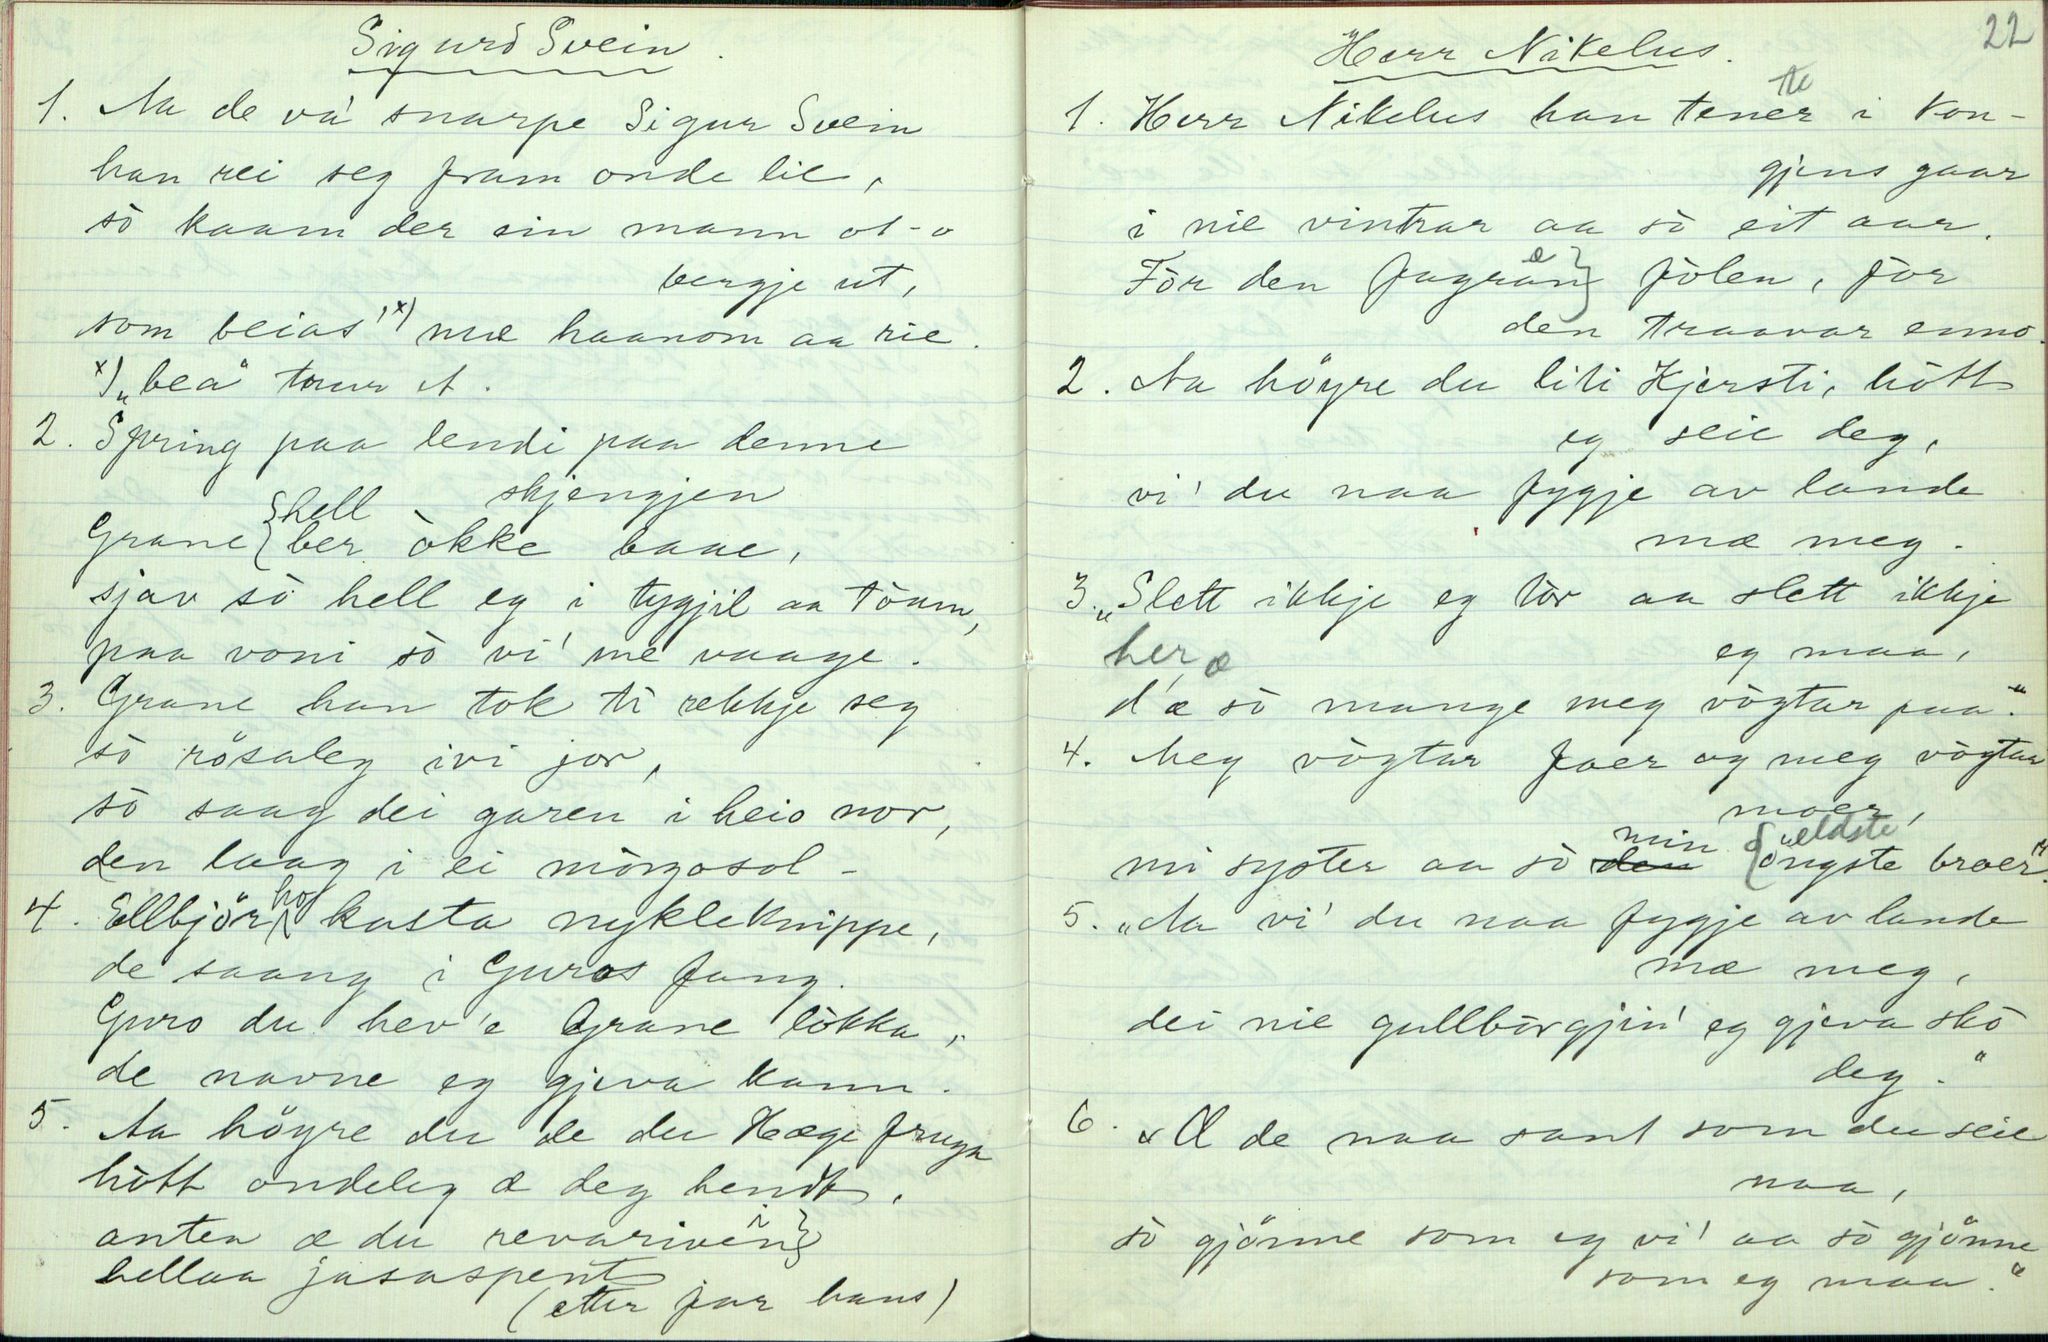 Sigurd Svein.
1. Aa de vá snarpe Sigur Svein
han rei seg fram onde lie,
sò kaam der ein mann ot-o
bergje ut,
som beias' x) mæ haanom aa rie.
x) „bea" trur A.
2. Spring paa lendi paa denne
skjengjen
hell
Grane { ber òkke baae,
sjav sò hell eg i tygjil aa tòum,
paa voni sò vi' me vaage.
3. Grane han tok ti rekkje seg
sò rösaleg ivi jor,
sò saag dei garen i heio nor,
den laag i ei mòrgosol -
4. Ellbjör ho kasta nykleknippe,
de saang i Guros fang.
Guro du hev'e Grane lòkka,
de navne eg gjeva kann.
5. Aa höyre du de du Hæge fruga
hòtt ondeleg æ deg hendt,
anten æ du revarivën }
hellaa jasaspent
(etter far hans)
22
Herr Nikelus.
te
1. Herr Nikelus han tener i kon-
gjens gaar
i nie vintrar aa sò eit aar.
e
Fòr den fagran } fòlen, fòr
den traavar ennò.
2. Aa höyre du liti Kjersti, hòtt
eg seie deg,
vi' du naa fygje av lande
mæ meg.
3. „Slett ikkje eg tòr aa slett ikkje
eg maa,
her æ
d'æ sò mange meg vògtar paa."
4. Meg vògtar faer og meg vògtar
moer,
min eldste
mi syster aa sò den { ongste broer."
5. „Aa vi' du naa fygje av lande
mæ meg,
dei nie gullbòrgjin' eg gjeva skò
deg."
6. „Æ de naa sant som du seie
naa,
sò gjönne som eg vi' aa sò gjönne
som eg maa."